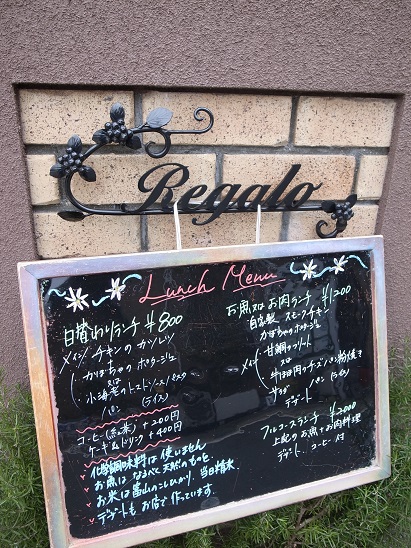 Regalo
Lunch Menu
日替わりランチ ¥800
メイン チキンのカツレツ
かぼちゃのポタージュ
又は
小海老のトマトソースパスタ
パン (ライス)
コーヒー(紅茶) +200円
ケーキ&ドリンク +400円
・化学調味料は使いません
・お魚はなるべく天然のものを。
・お米は富山のこしひかり、当日精米。
・デザートもお店で作っています。
お魚又はお肉ランチ ¥1200
自家製スモークチキン
かぼちゃのポタージュ
メイン 甘鯛のソテー
又は
牛ヒレ肉のチーズパン粉焼き
サラダ パン (ライス)
デザート
フルコースランチ ¥2000
上記のお魚+お肉料理
デザート コーヒー付